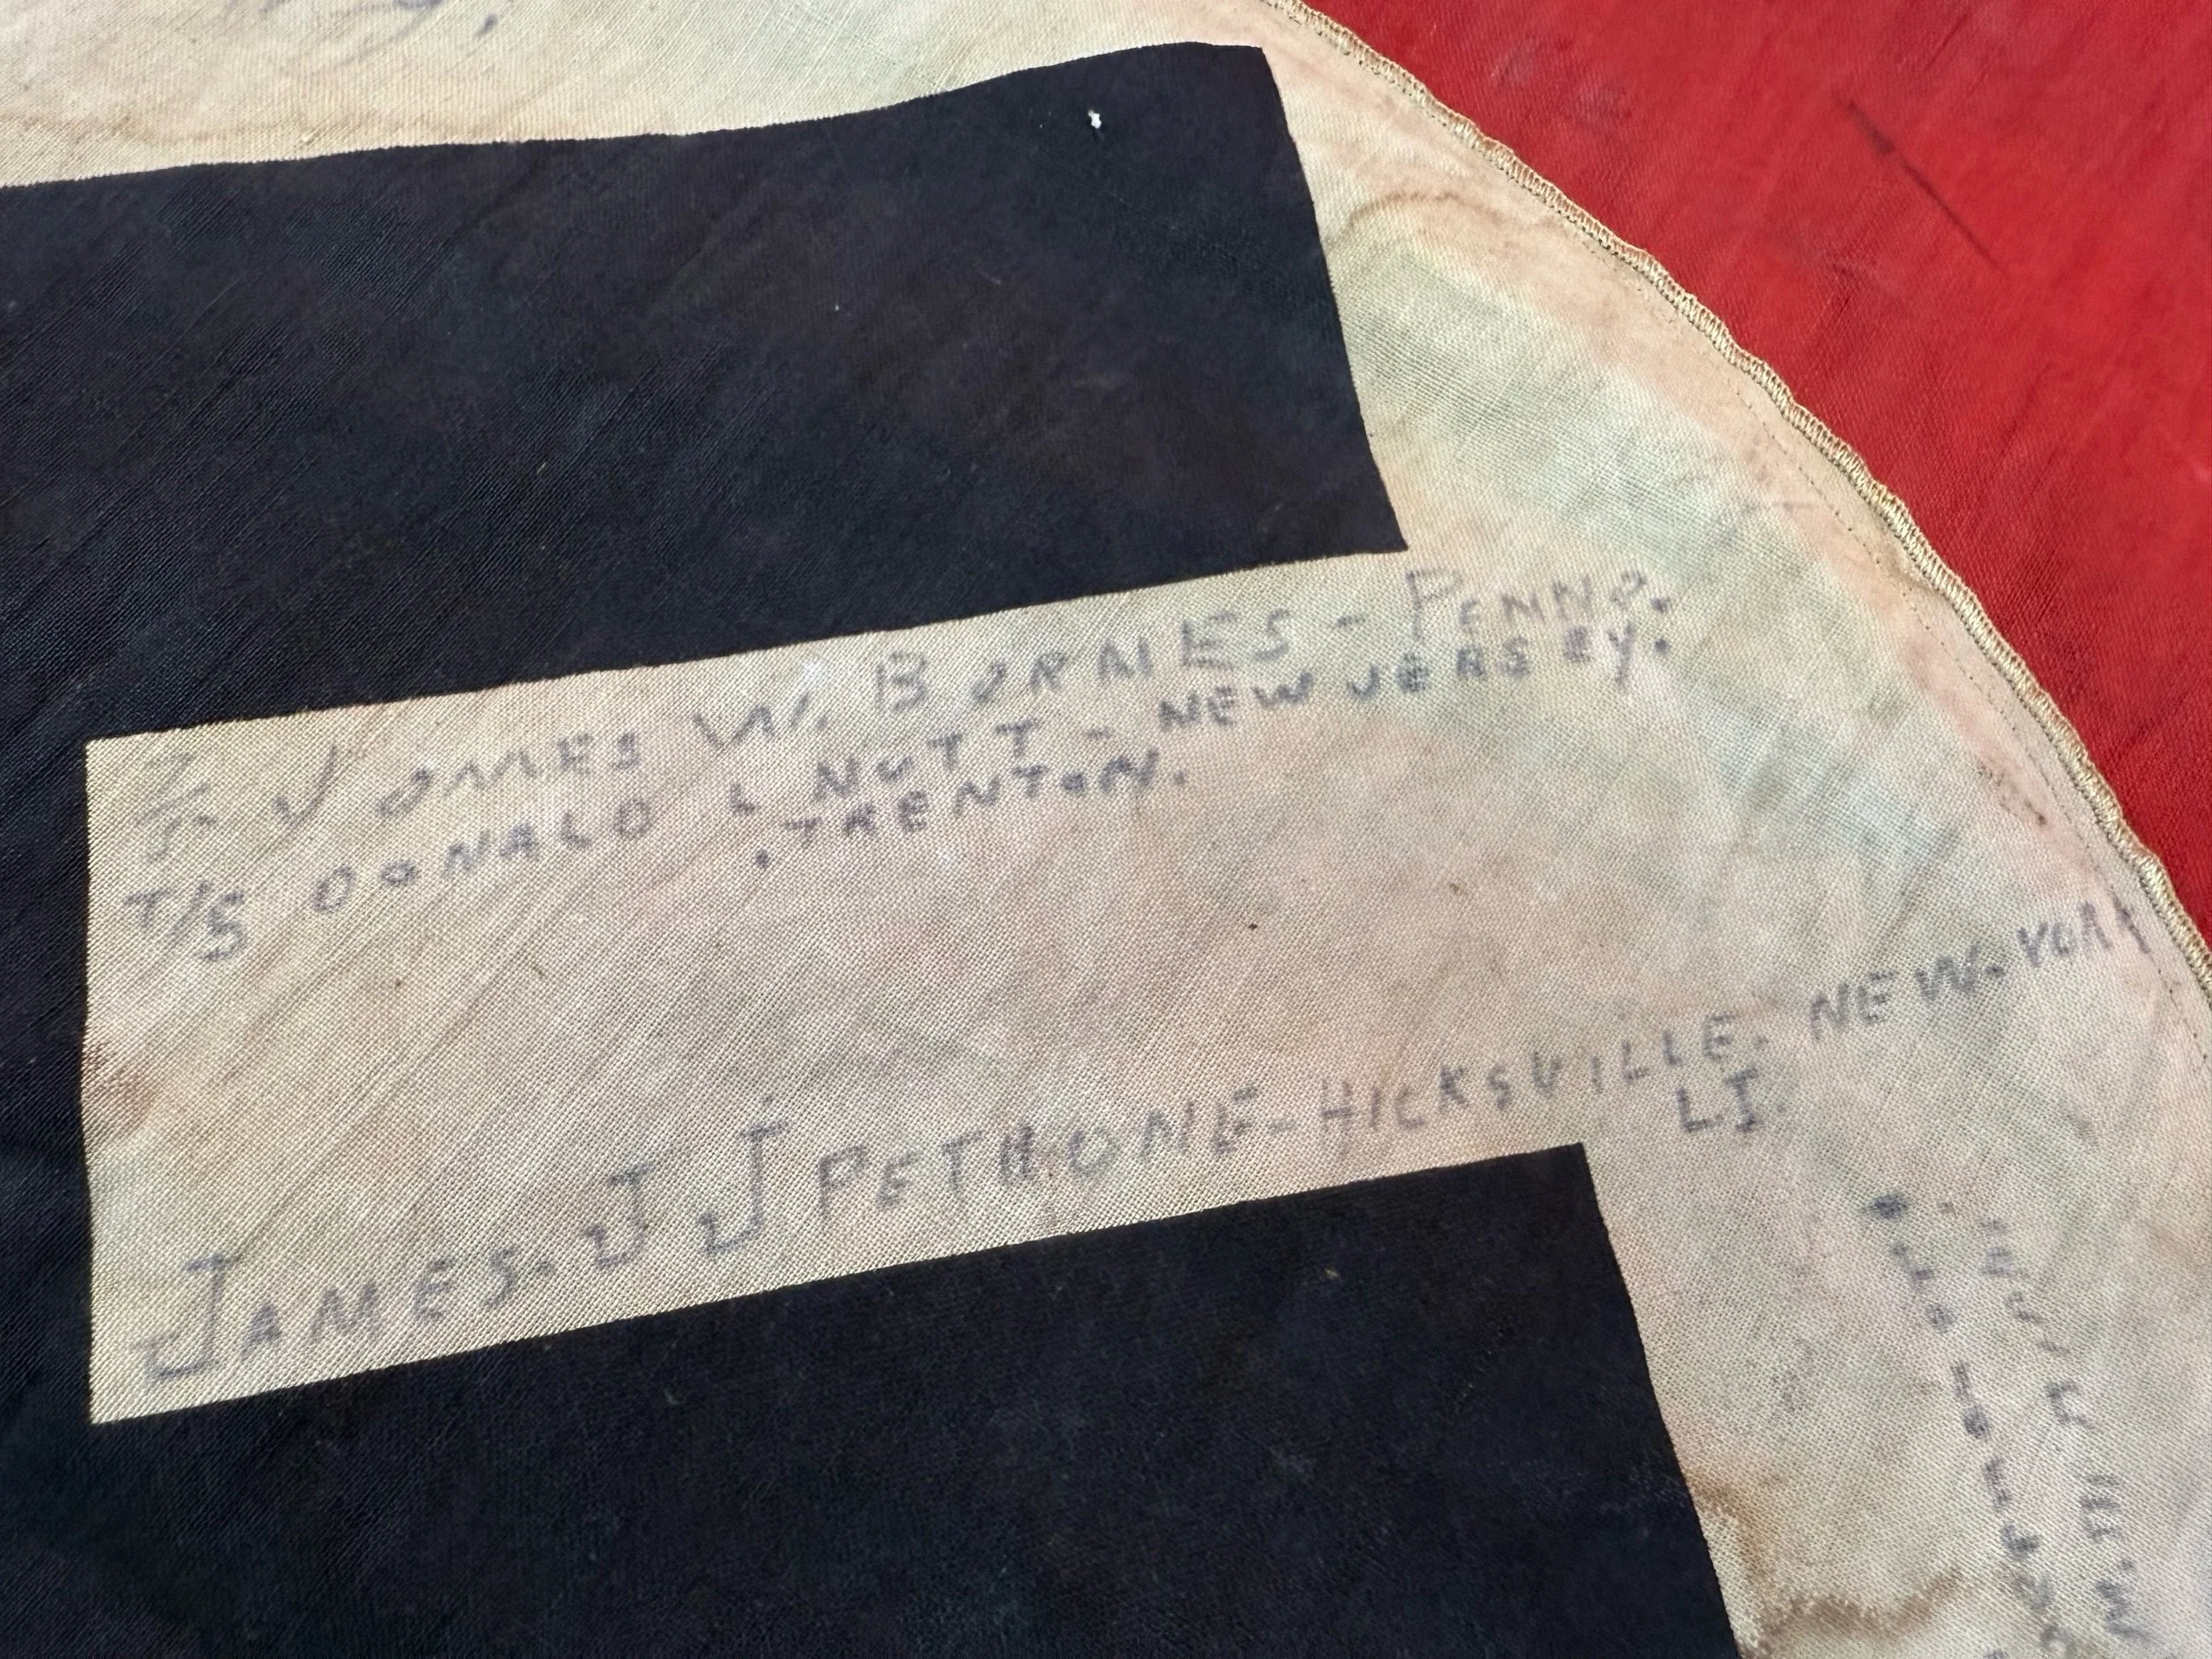 T/5 JAMES W. BARNES - PENNA.
T/5 DONALD L NUTT - NEW JERSEY.
. TRENTON.
JAMES. J J PETRONE - HICKSVILLE. NEW. YORK
L.I.